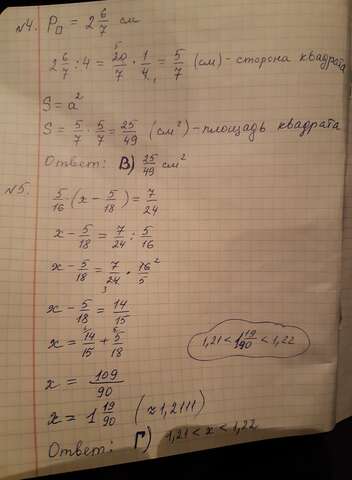 №4. P□ = 2 6/7 см
2 6/7 : 4 = 20/7 · 1/4 = 5/7 (см) - сторона квадрата
S = a²
S = 5/7 · 5/7 = 25/49 (см²) - площадь квадрата
Ответ: В) 25/49 см²
№5.
5/16 · (x - 5/18) = 7/24
x - 5/18 = 7/24 : 5/16
x - 5/18 = 7/24 · 16/5
x - 5/18 = 14/15
x = 14/15 + 5/18
1,21 < 1 19/90 < 1,22
x = 109/90
x = 1 19/90 (≈1,2111)
Ответ: Г) 1,21 < x < 1,22